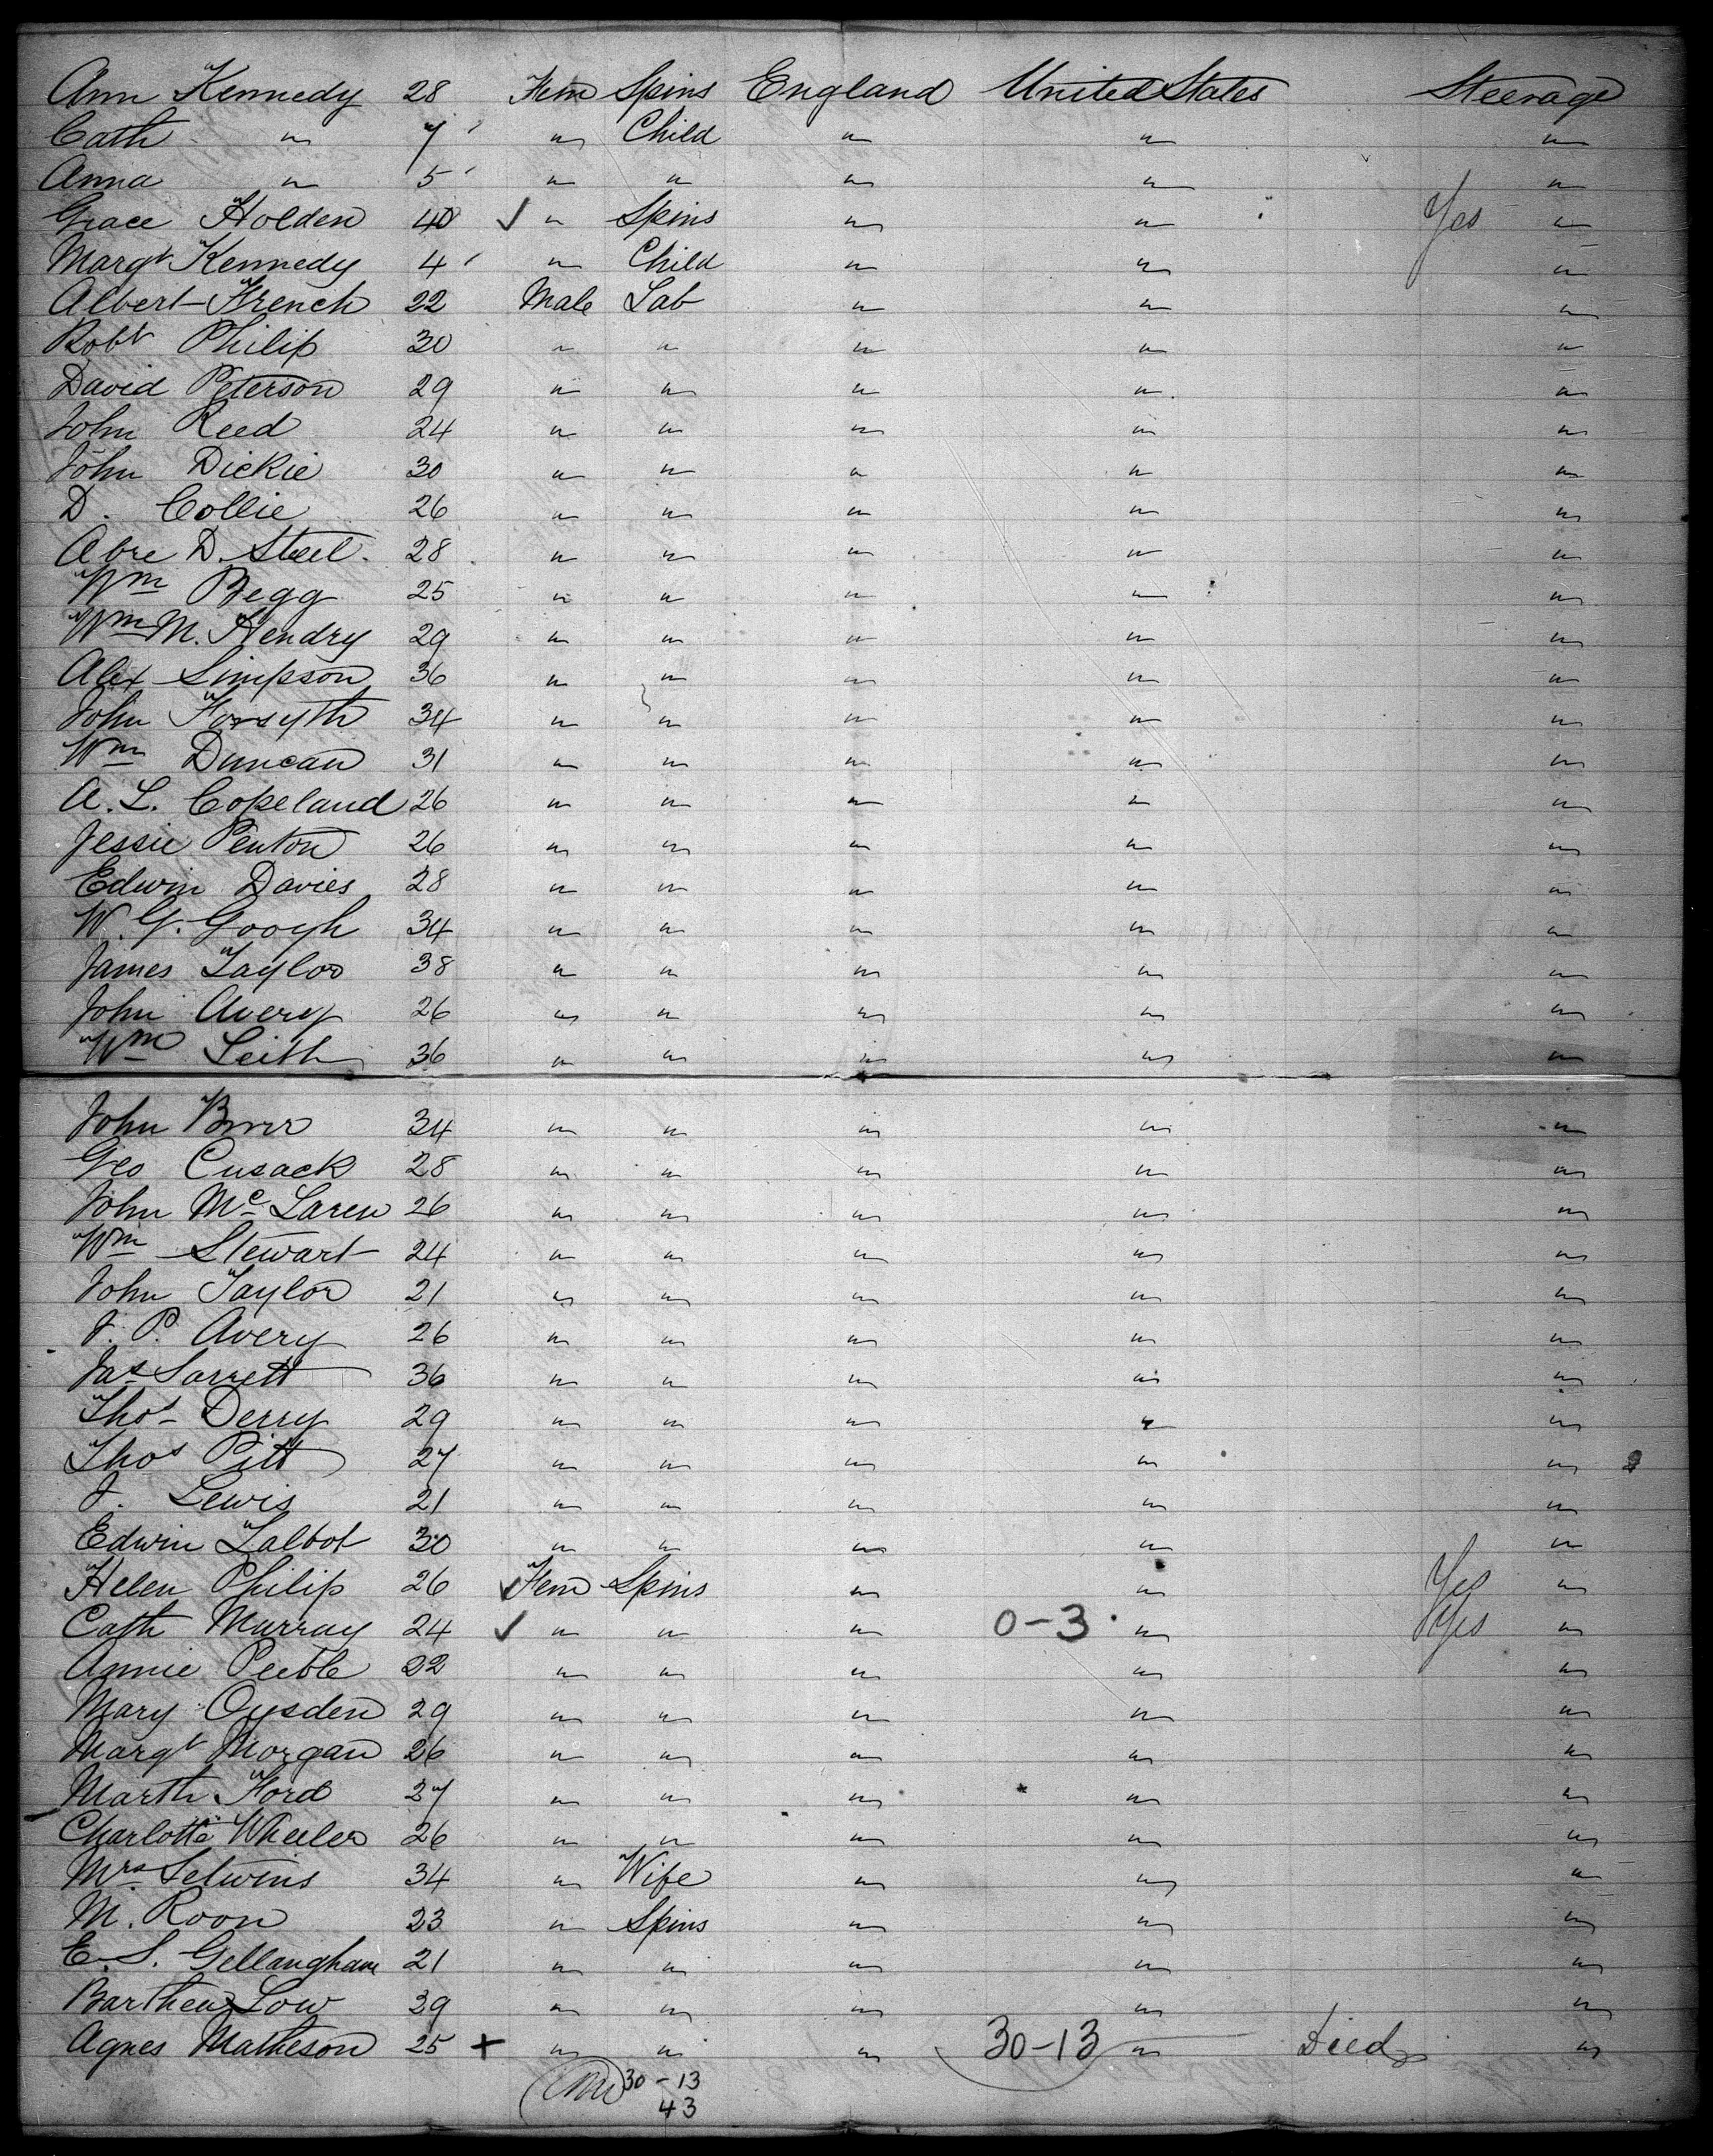 Ann Kennedy 28 Fem Spins England United States Steerage
Cath " 7 " Child " " "
Anna " 5 " " " " "
Grace Holden 40 ✓ " Spins " " Yes "
Margt Kennedy 4 " Child " " "
Albert French 22 Male Lab " " "
Robt Philip 30 " " " " "
David Peterson 29 " " " " "
John Reed 24 " " " " "
John Dickie 30 " " " " "
D. Collie 26 " " " " "
D. Steel 28 " " " " "
Wm Begg 25 " " " " "
Wm M. Hendry 29 " " " " "
Alex Simpson 36 " " " " "
John Forsyth 34 " " " " "
Wm Duncan 31 " " " " "
A. L. Copeland 26 " " " " "
Jessie Penton 26 " " " " "
Edwin Davies 28 " " " " "
W. G. Googh 34 " " " " "
James Taylor 38 " " " " "
John Avery 26 " " " " "
Wm Leith 36 " " " " "
John 34 " " " " "
Geo Cusack 28 " " " " "
John Mc Laren 26 " " " " "
Wm Stewart 24 " " " " "
John Taylor 21 " " " " "
J. P. Avery 26 " " " " "
Jas 36 " " " " "
Thos Derry 29 " " " " "
Thos Pitt 27 " " " " "
J. Lewis 21 " " " " "
Edwin Talbot 30 " " " " "
Helen Philip 26 ✓ Fem Spins " " Yes "
Cath Murray 24 ✓ " " " 0-3 " Yes "
Annie Peeble 22 " " " " "
Mary Ousden 29 " " " " "
Margt Morgan 26 " " " " "
Marth Ford 27 " " " " "
Charlotte Wheeler 26 " " " " "
Mrs Selwins 34 " Wife " " "
M. Roon 23 " Spins " " "
E. S. Gellangham 21 " " " " "
Barthew Low 29 " " " " "
Agnes Matheson 25 + " " " 30-13 " Died "
30-13
43